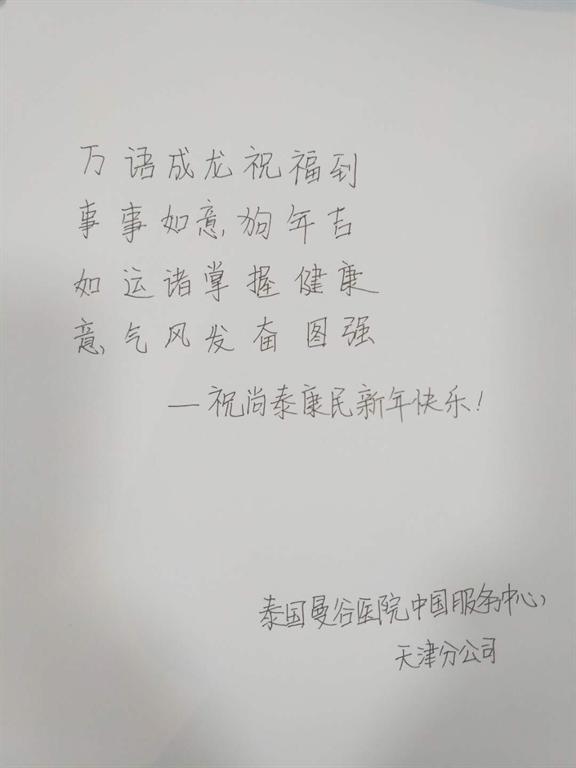 万语成龙祝福到
事事如意狗年吉
如运诸掌握健康
意气风发奋图强
—祝尚泰康民新年快乐!
泰国曼谷医院中国服务中心
天津分公司